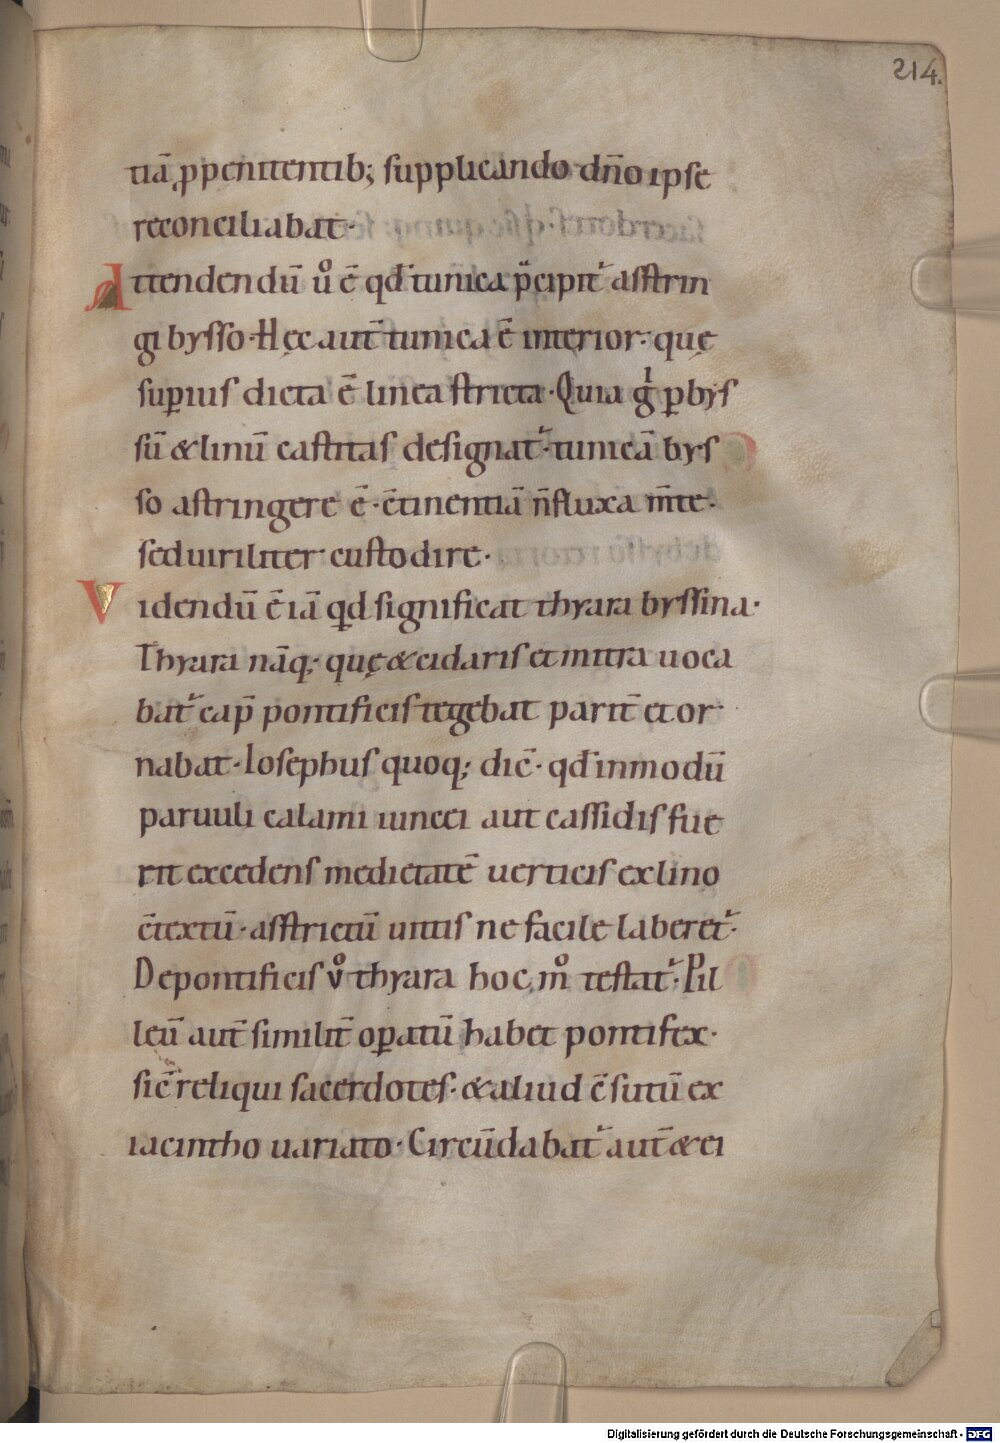 214.
tiā ,ppenitentib; supplicando dn̄o ipse
reconciliabat·
Attendendū ů ē qđ tunica p̈cipit᷑ asstrin
gi bysso· Hęc aut̄ tunica ē interior· quę
suꝑius dicta ē linea stricta· Quia gͥ ꝑ bys
sū & linū castitas designat᷑· tunicā bys
so astringere ē· c̄tinentiā n̄ fluxa m̄te·
sed uiriliter custodire·
Videndū ē iā qđ significat thyara byssina·
Thyara nāq; quę & cidaris et mitra uoca
bat᷑ cap̄ pontificis tegebat parit̄ et or
nabat· Iosephus quoq; dic̄· qđ in modū
paruuli calami iuncei aut cassidis fue
rit excedens medietatē uerticis ex lino
c̄textū· asstrictū uittis ne facile laberet᷑·
De pontificis v̊ thyara hoc m̊ testat᷑· Pil
leū aut̄ similit̄ oꝑatū habet pontifex·
sic̄ reliqui sacerdotes· & aliud ē sutū ex
iacintho uariato· Circūdabat᷑ aut̄ & ei
Digitalisierung gefördert durch die Deutsche Forschungsgemeinschaft - DFG